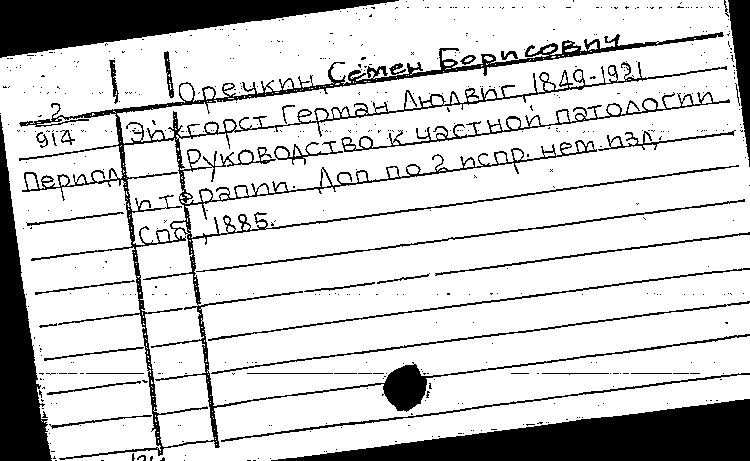 Оречкин, Семен Борисович
2
914
Эйхгорст, Герман Людвиг, 1849-1921
Руководство к частной патологии
Период
и терапии. Доп. по 2 испр. нем. изд.
Спб., 1885.